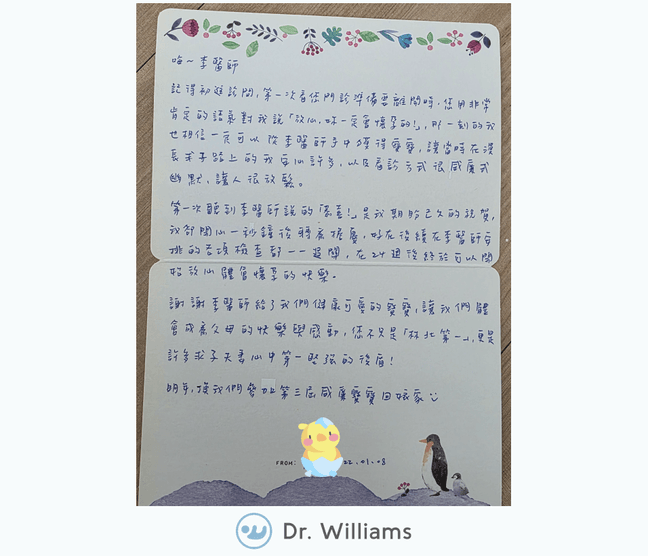 嗨~李醫師
記得初進診間,第一次看您門診準備要離開時,您用非常
肯定的語氣對我說「放心,妳一定會懷孕的!」,那一刻的我
也相信一定可以從李醫師手中獲得寶寶,讓當時在漫
長求子路上的我安心許多,以及看診方式很威廉式
幽默,讓人很放鬆。
第一次聽到李醫師說的「恭喜!」是我期盼已久的祝賀,
我卻開心一秒鐘後轉為擔憂,好在後續在李醫師安
排的各項檢查都一一過關,在24週後終於可以開
始放心體會懷孕的快樂。
謝謝李醫師給了我們健康可愛的寶寶,讓我們體
會成為父母的快樂與感動,您不只是「林北第一」,更是
許多求子夫妻心中第一堅強的後盾!
明年,換我們參加第三屆威廉寶寶回娘家
FROM: 22.01.08
Dr. Williams